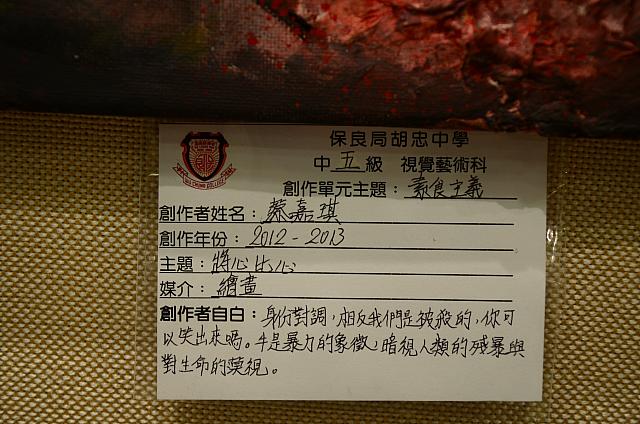 保良局胡忠中學
中五級 視覺藝術科
創作單元主題：素食主義
創作者姓名：蔡嘉琪
創作年份：2012-2013
主題：將心比心
媒介：繪畫
創作者自白：身份對調，相反我們是被殺的，你可
以笑出來嗎。牛是暴力的象徵，暗視人類的殘暴與
對生命的漠視。